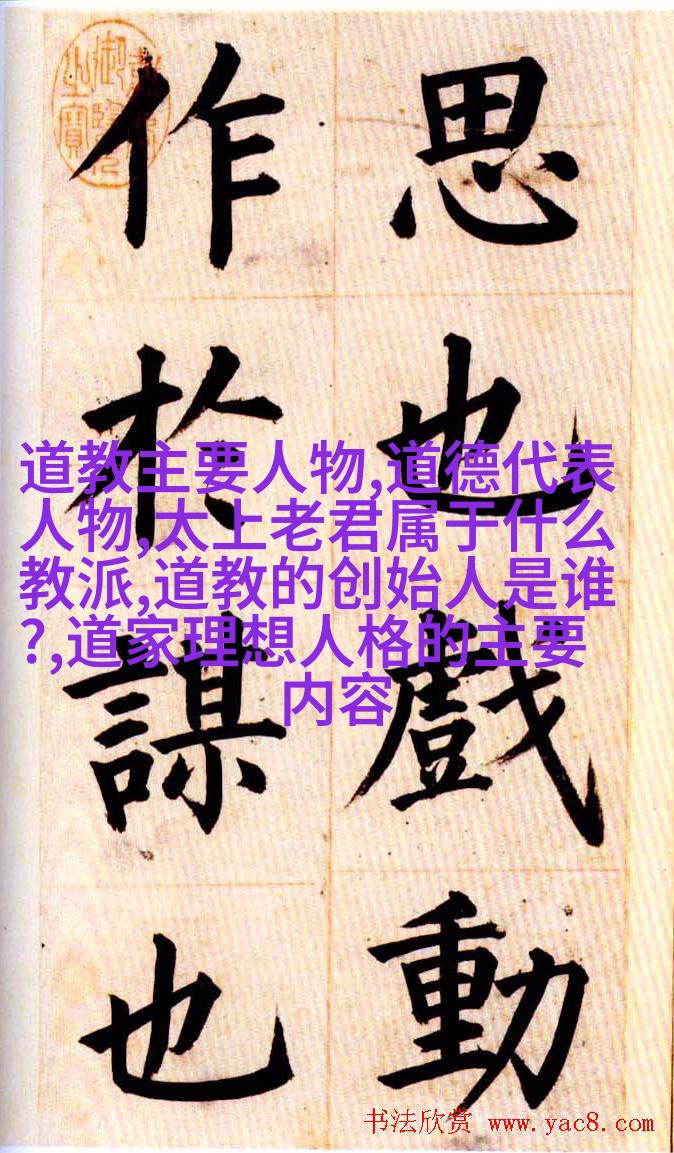 思也戲動
作於謀也
道教主要人物,道德代表
人物,太上老君属于什么
教派,道教的创始人是谁
?,道家理想人格的主要
内容
书法欣赏 www.yac8.com